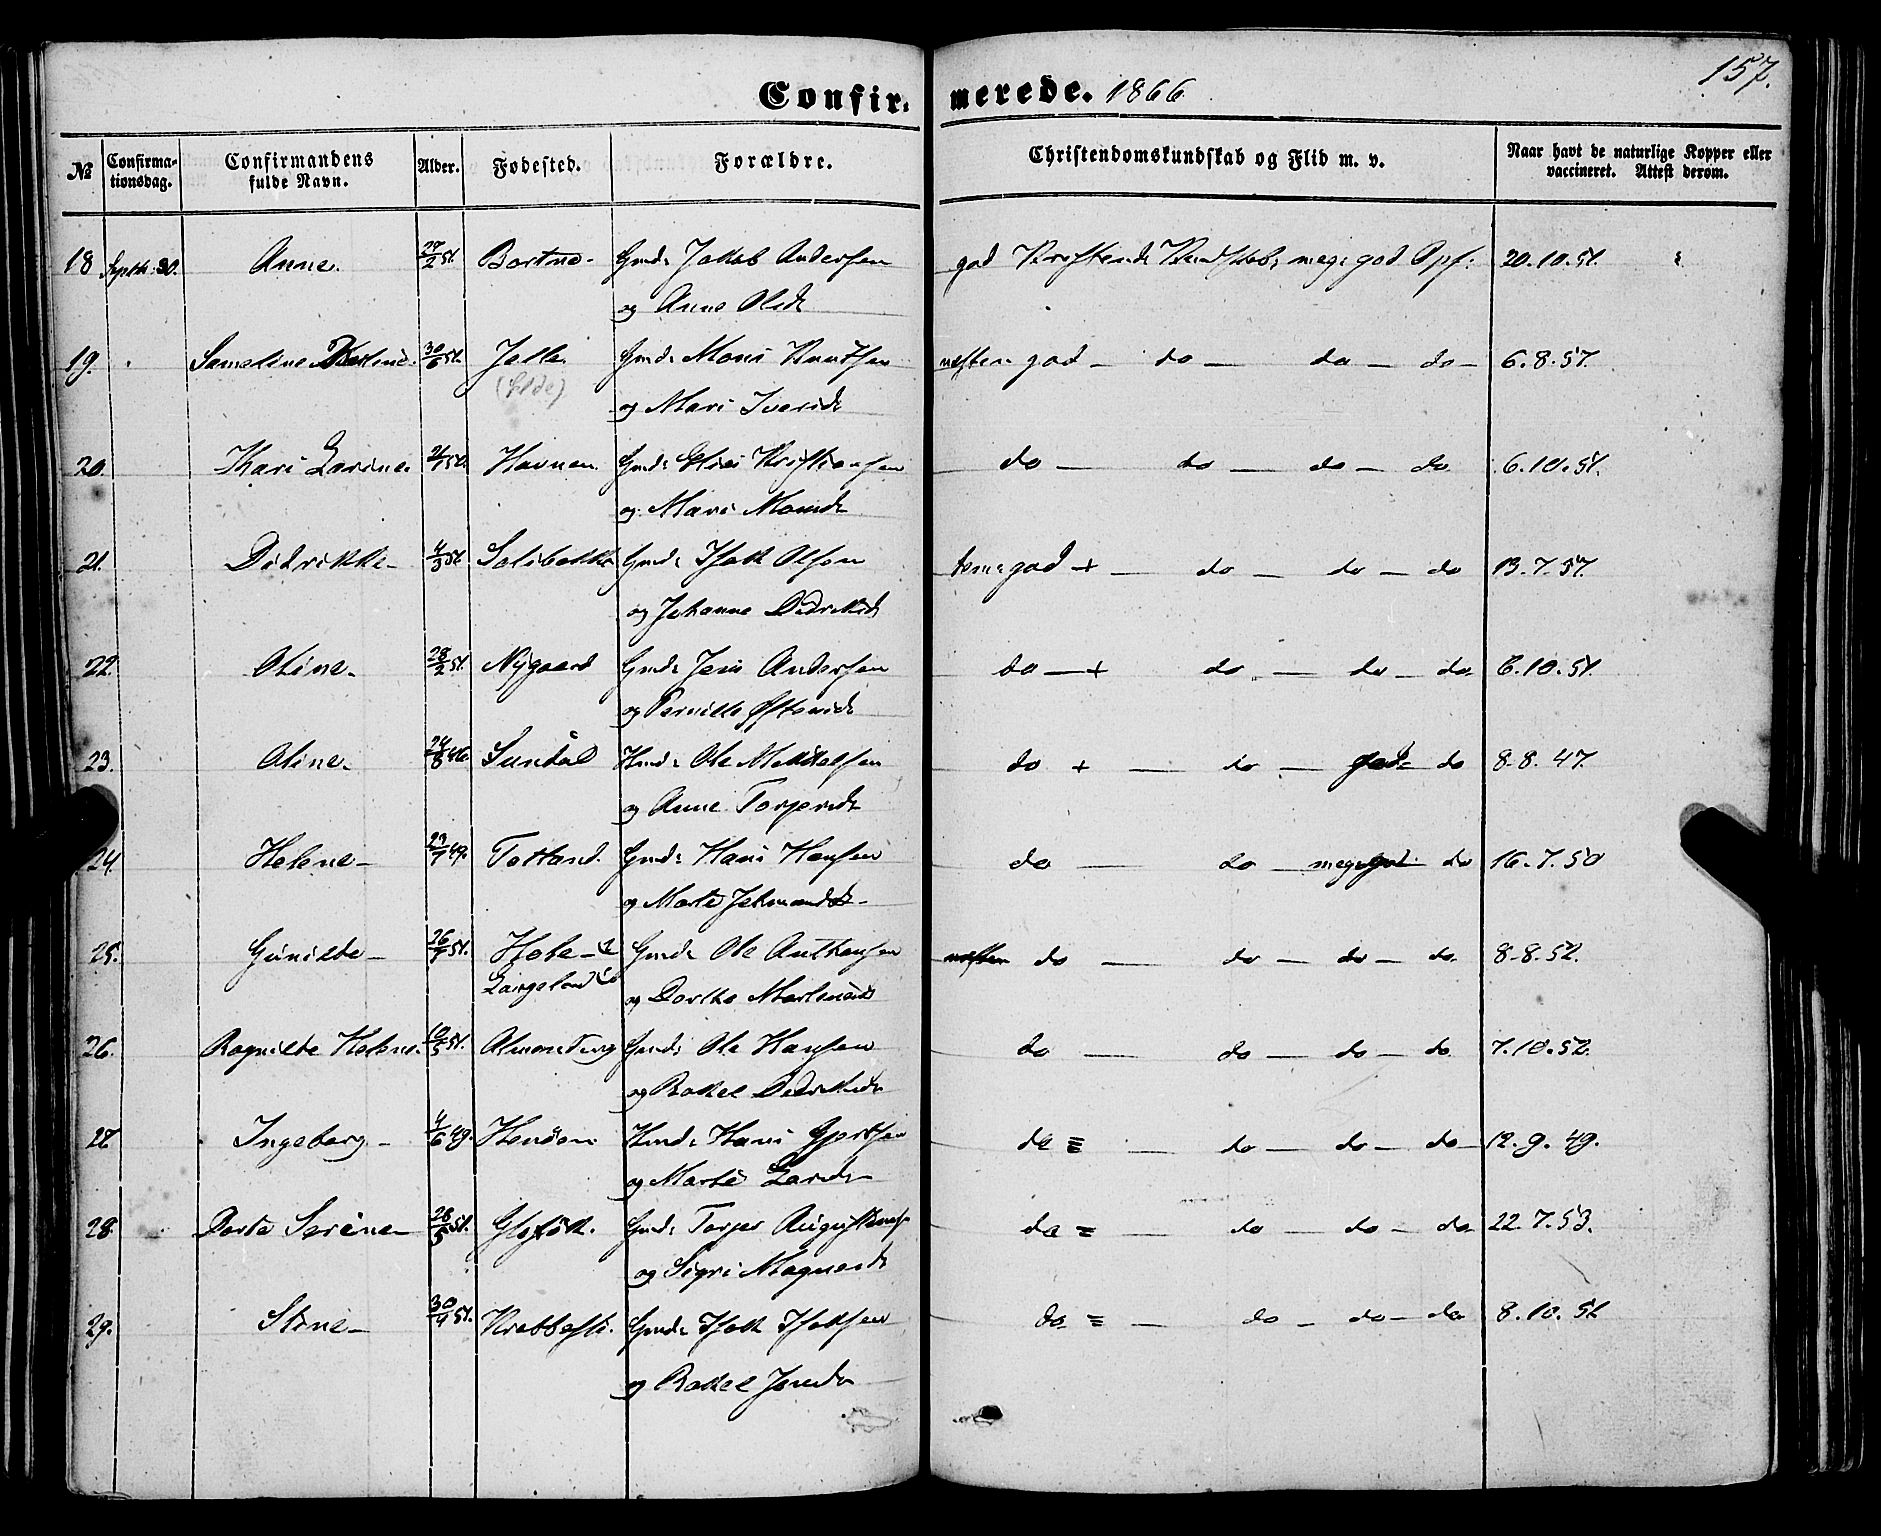 157.
Confirmerede. 1866
№ Confirmationsdag. Confirmandens fulde Navn. Alder. Fødested. Forældre. Christendomskundskab og Flid m. v. Naar havt de naturlige Kopper eller vaccineret. Attest derom.
18 Septb. 30. Anne. 27/2 51 Bortne. Gmd: Jakob Andersen god Kristends Kundskab, meg: god Opf: 20.10.51.
og Anne Olsd:
19. 30/6 51. Jelle Gmd: Mons Knudsen næsten god – do – do – do – 6.8.57.
(Elde)
og Mari Iversd:
20. Kari Larine. 50. Havnen. Gmd: Elias Kristiansen do – do – do – do 6.10.51.
og Mari Monsd:
21. Didrikke 4/3 51 Gmd: Isak Olsen god + – do – do – do 13.7.57.
og Johanne Didriksd:
22. Oline 28/2 51. Nygaard Gmd: Jens Andersen do – + do – do – do 6.10.51.
og Pernille Østensd:
23. Oline Sundal Hmd: Ole Mikkelsen do + – do – god do 8.8.47.
og Anne Torgersd:
24. Helene 23/7 49. Totland. Gmd: Hans Hansen do – do – meg: god do 16.7.50
og Marte
25. Gunilde 26/7 51. Hole Gmd: Ole Anthonsen næsten do – do – do – do 8.8.52.
Langeland
og Dorthe Martinsd:
26. Ragnilde Helene. 10/5 51. Gmd: Ole Hansen do – do – do – do 7.10.52.
og Rakel Didriksd:
27 Ingeborg 4/6 49. Henøen Hmd: Hans Gjertsen do = – do – do – do 12.9.49.
og Marte Larsd:
28. Dorte Serine 28/5 51. Gmd: Torger Augustins: do = – do – do – do 22.7.53.
og Sigri Magnesd:
29. Stine 30/9 51. Krabbest: Gmd: Isak Isaksen do = – do – do – do 8.10.51
og Rakel Jonsd: